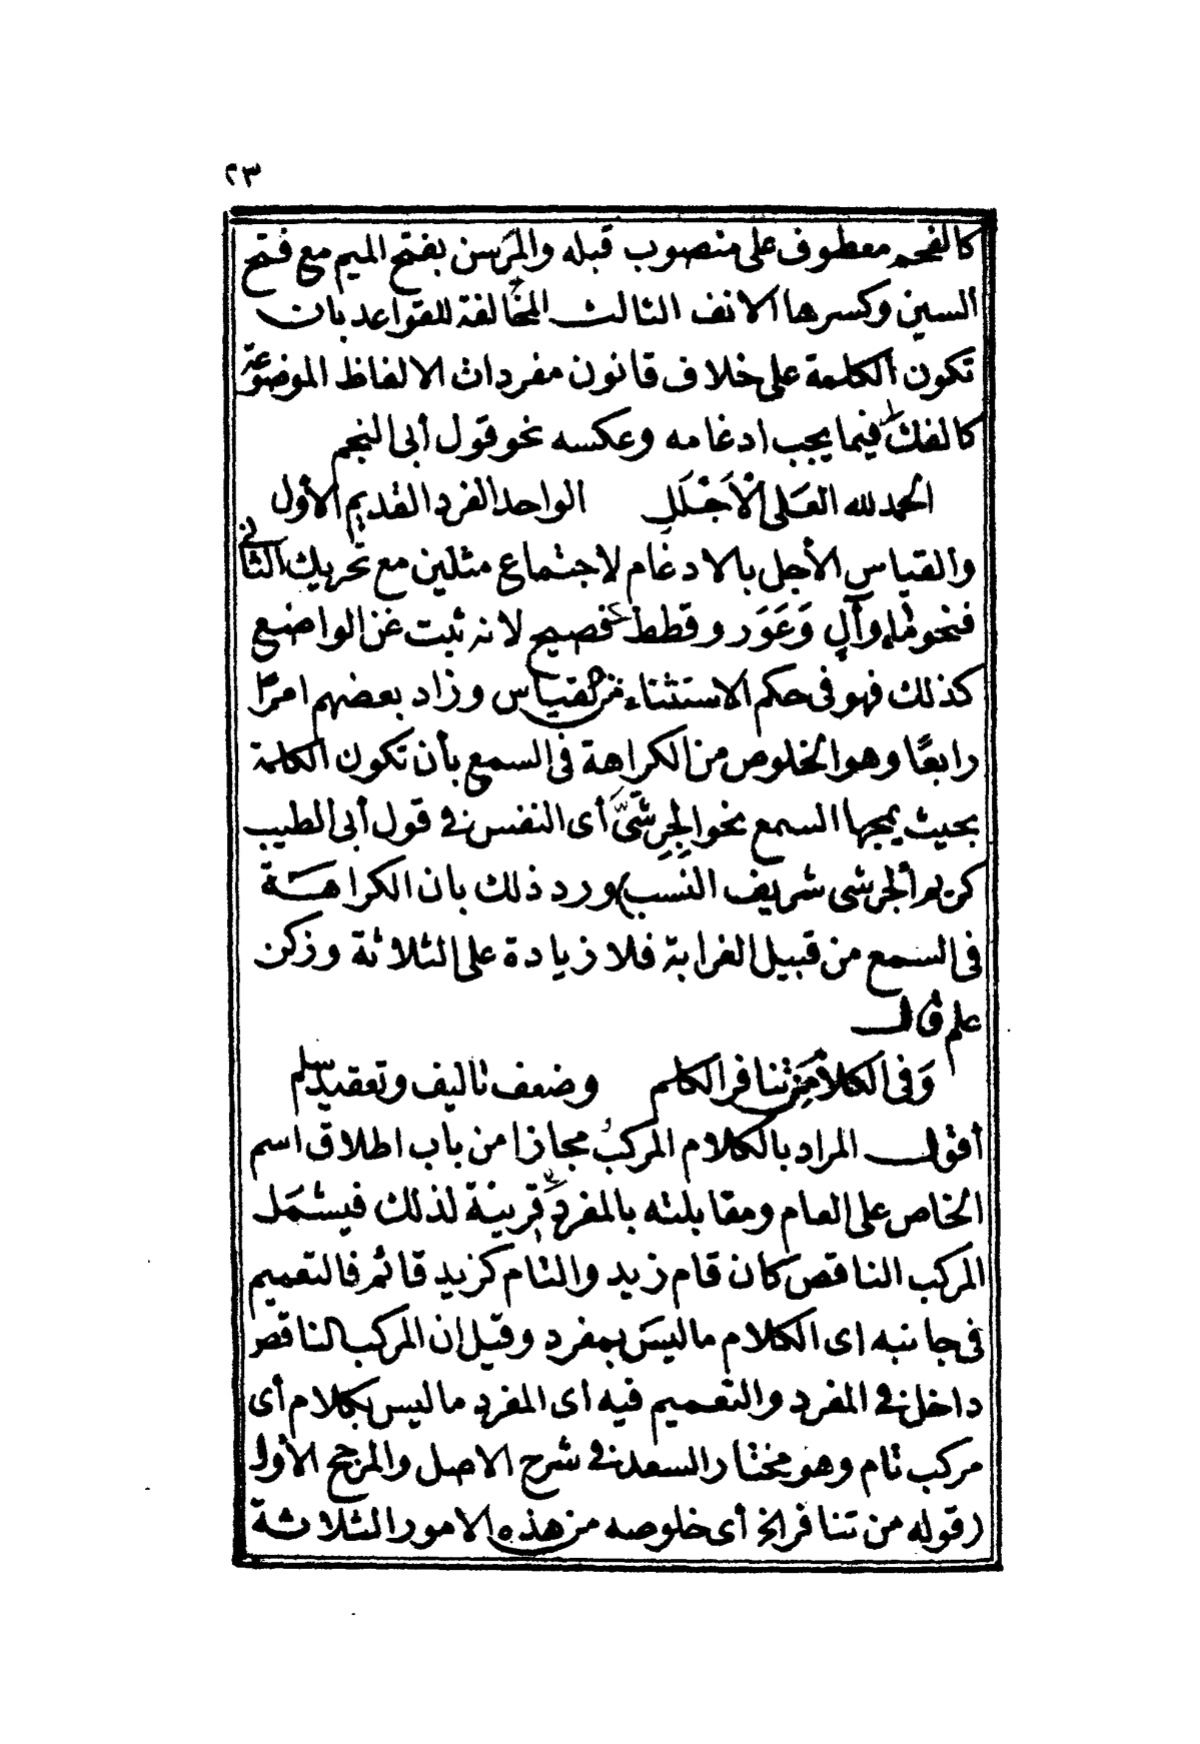 ٢٣
كالفحم معطوف على منصوب قبله والمرسن بفتح الميم مع فتح
السين وكسرها الانف الثالث المخالفة للقواعد بان
تكون الكلمة على خلاف قانون مفردات الالفاظ الموضوعة
كالفك فيما يجب ادغامه وعكسه نحو قول أبى النجم
الحمد لله العَلى الْأَجْلَلِ الواحد الفرد القديم الأول
والقياس الأجل بالادغام لاجتماع مثلين مع تحريك الثانى
فنحو ماء وآل وَعَوَر وقطط فصيح لانه ثبت عن الواضع
كذلك فهو فى حكم الاستثناء من القياس وزاد بعضهم امرًا
رابعًا وهو الخلوص من الكراهة فى السمع بأن تكون الكلمة
بحيث يمجها السمع نحو الجِرِشَّى أى النفس فى قول أبى الطيب
كريم الجرشى شريف النَسب) ورد ذلك بان الكراهَة
فى السمع من قبيل الغرابة فلا زيادة على الثلاثة وزكن
علم قال
وَفى الكلام من تنافر الكلم وضعف تاليف وتعقيد سلم
أقول المراد بالكلام المركبُ مجازا من باب اطلاق اسم
الخاص على العام ومقابلته بالمفرد قرينة لذلك فيشمَل
المركب الناقص كان قام زيد والتام كزيد قائم فالتعميم
فى جانبه اى الكلام ما ليسَ بمفرد وقيل إن المركب الناقص
داخل فى المفرد والتعميم فيه اى المفرد ما ليس بكلام أى
مركب تام وهو مختار السعد فى شرح الاصل والمرجح الأول
(قوله من تنافر الخ أى خلوصه من هذه الامور الثلاثة